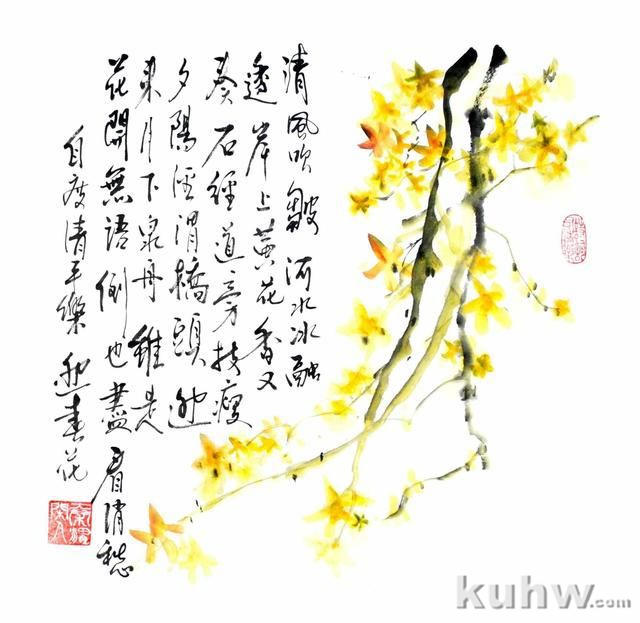 清風吹皺河水冰融
透岸上黄花香又
奏石徑道旁枝瘦
夕陽涇渭橋頭迎
来月下泉舟雖是
花開無語倒也盡看消愁
自度清平樂 迎春花
kuhw.com